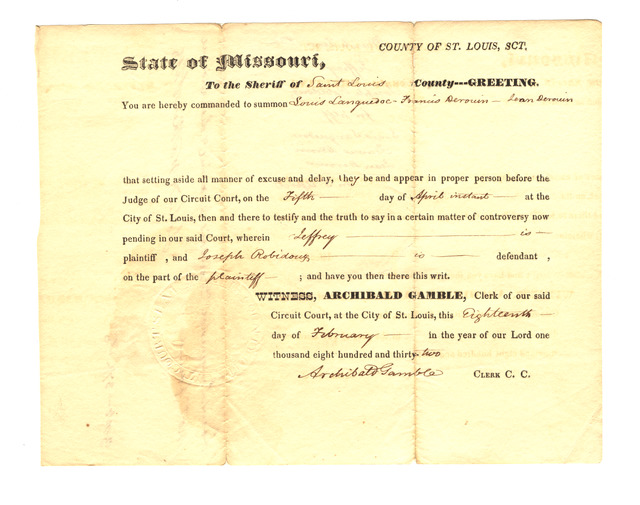 COUNTY OF ST. LOUIS, SCT.
State of Missouri,
To the Sheriff of Saint Louis County---GREETING.
You are hereby commanded to summon Louis Languedoc - Francis Derouin - Jean Derouin
that setting aside all manner of excuse and delay, they be and appear in proper person before the
Judge of our Circuit Court, on the Fifth day of April instant at the
City of St. Louis, then and there to testify and the truth to say in a certain matter of controversy now
pending in our said Court, wherein Jeffrey is
plaintiff , and Joseph Robidoux is defendant ,
on the part of the plaintiff ; and have you then there this writ.
WITNESS, ARCHIBALD GAMBLE, Clerk of our said
Circuit Court, at the City of St. Louis, this Eighteenth
day of February in the year of our Lord one
thousand eight hundred and thirty-two
Archibald Gamble CLERK C. C.